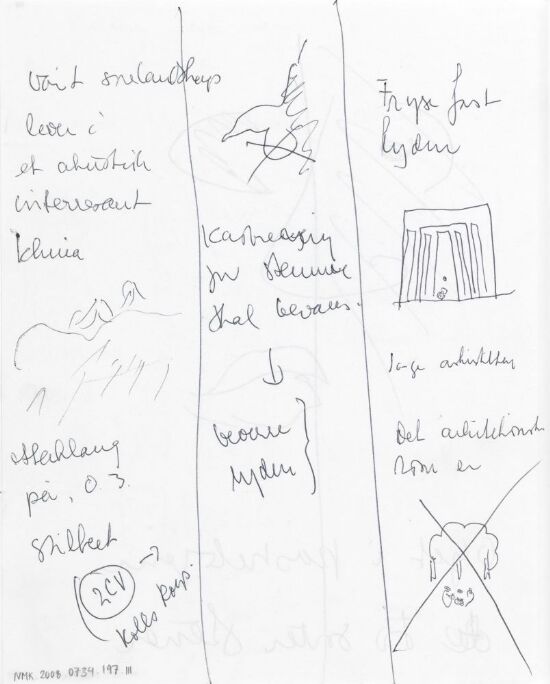 Vårt snelandskap
lever i
et akustisk
interresant
klima
etterklang
på, 0.3.
stillhet
2CV →
Rolls Royce.
Kastrering
for stemmer
skal bevares.
bevare
lyden
Fryse fast
lyden
lage arkitektur
Det arkitektoniske
rom er
NMK.2008.0734.197.III